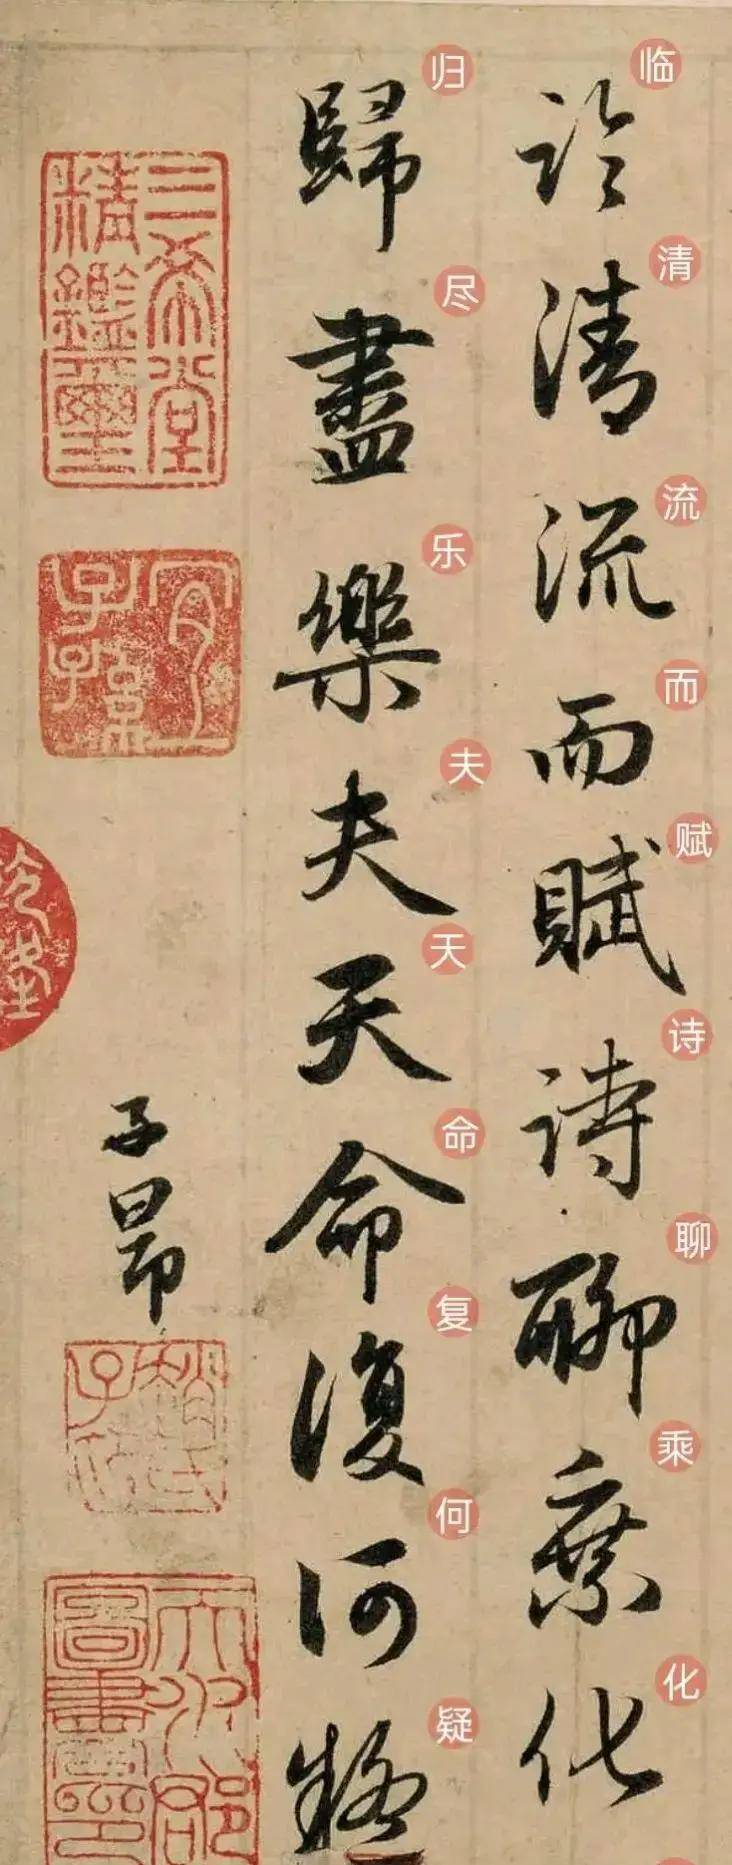 临清流而赋诗聊乘化
臨清流而賦詩聊乘化
归尽乐夫天命复何疑
歸盡樂夫天命復何疑
三希堂
精鑑璽
宜
子孫
子昂
趙氏
子昂
天水郡
圖書印